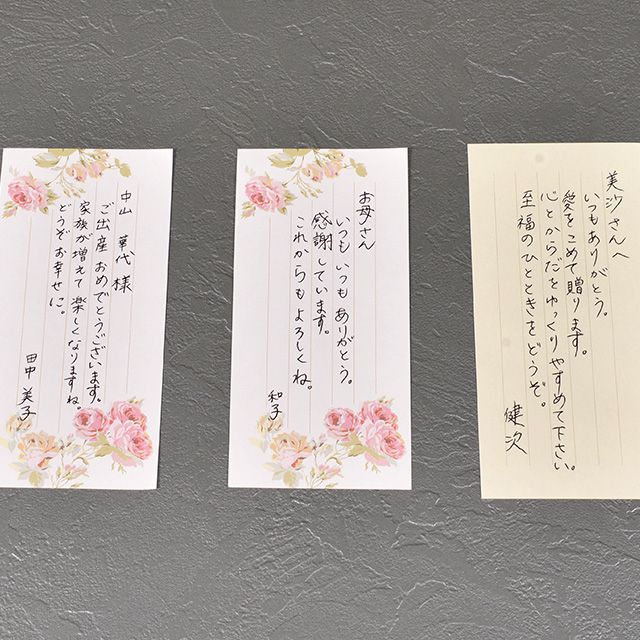 美沙さんへ
いつもありがとう。
愛をこめて贈ります。
心とからだをゆっくりやすめて下さい。
至福のひとときをどうぞ。
健次
お母さん
いつもいつもありがとう。
感謝しています。
これからもよろしくね。
和子
中山 華代 様
ご出産おめでとうございます。
家族が増えて楽しくなりますね。
どうぞお幸せに。
田中 美子